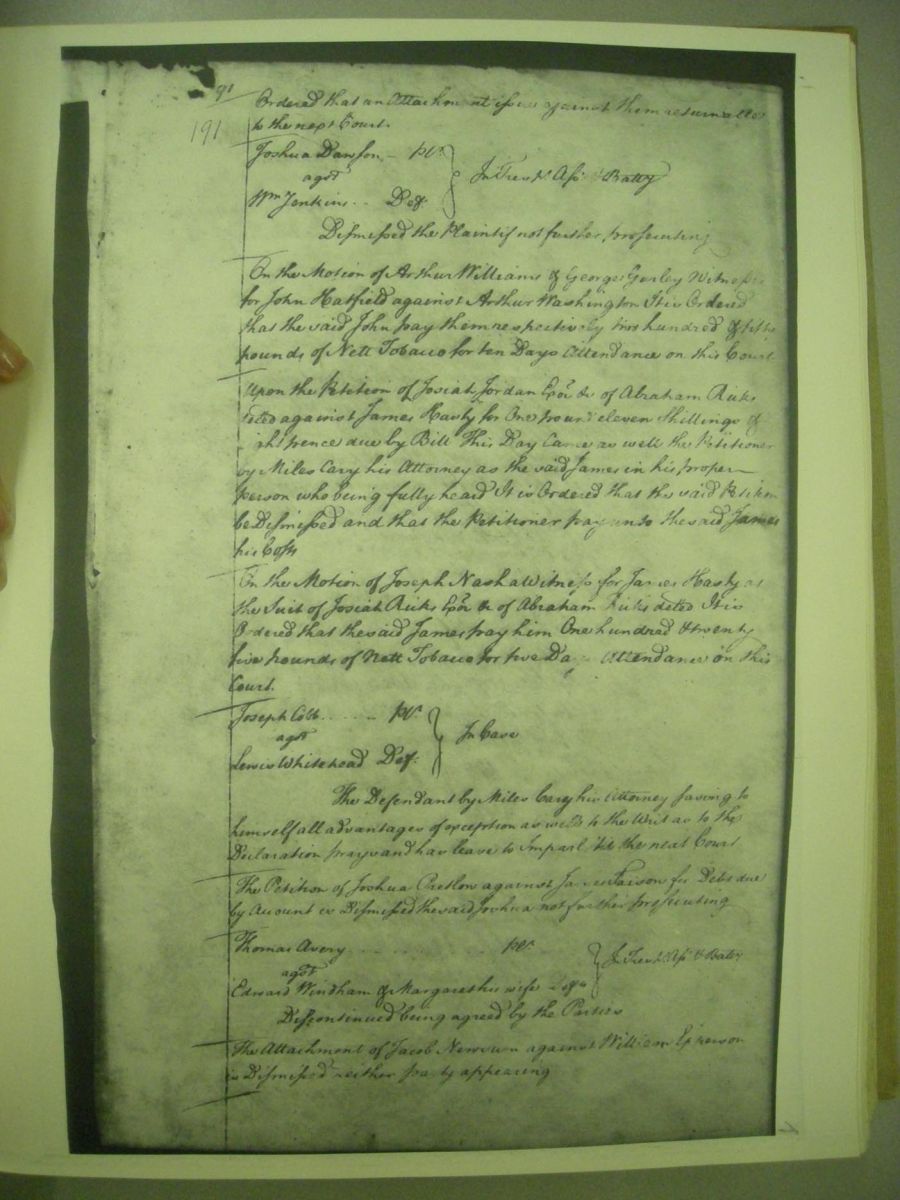 91
191
Ordered that an Attachment issue against them returnable
to the next Court.
Joshua Dawson - plt.
agst
Wm Jenkins .. Deft.
In Tresps Asst & Battry
Dismissed the Plaintif not further prosecuting
On the Motion of Arthur Williams & George Gurley Witnesses
for John Hatfield against Arthur Washington It is Ordered
that the said John pay them respectively two hundred & fifty
pounds of Nett Tobacco for ten Days Attendance on this Court
Upon the Petition of Josiah Jordan Exor &c of Abraham Ricks
against James Hasty for One pound eleven Shillings &
pence due by Bill This Day Came as well the Petitioner
by Miles Cary his Attorney as the said James in his proper
person who being fully heard It is Ordered that the said Petition
be Dismissed and that the Petitioner pay unto the said James
his Costs
On the Motion of Joseph Nash a Witness for James Hasty at
the Suit of Josiah Ricks Exor &c of Abraham Ricks deced It is
Ordered that the said James pay him One hundred & twenty
five pounds of Nett Tobacco for five Days Attendance on this
Court.
Joseph Cobb ..... plt
agst
Lewis Whitehead Deft.
In Case
The Defendant by Miles Cary his Attorney saving to
himself all advantages of exception as well to the Writ as to the
Declaration prays and has leave to Imparl 'till the next Court
The Petition of Joshua Pretlow against James Faison for Debt due
by Account is Dismissed the said Joshua not further prosecuting
Thomas Avery ......... plt.
agst
Edward Windham & Margaret his wife Defts
In Tresps Asst & Battry
Discontinued being agreed by the Parties
The Attachment of Jacob Newsum against William Epperson
is Dismissed neither party appearing